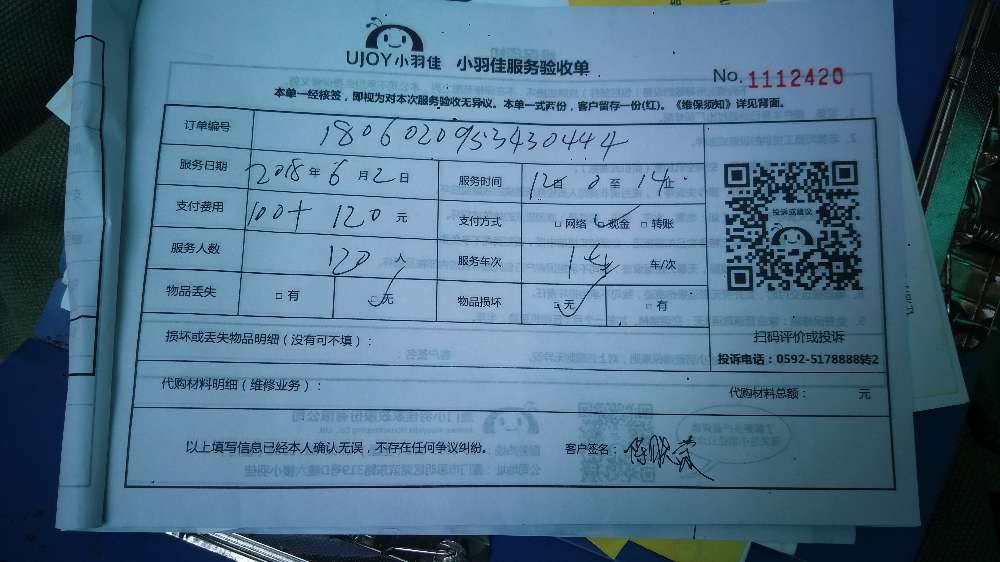 UJOY小羽佳 小羽佳服务验收单
No. 1112420
本单一经核签，即视为对本次服务验收无异议。本单一式两份，客户留存一份(红)。《维保须知》详见背面。
订单编号 1806020953430444
服务日期 2018年6月2日 服务时间 12 0至14
支付费用 100+120元 支付方式 □网络 □现金 □转账
服务人数 120人 服务车次 1 车/次
物品丢失 □有 □无 物品损坏 □无 □有
投诉或建议
扫码评价或投诉
投诉电话：0592-5178888转2
损坏或丢失物品明细（没有可不填）：
代购材料明细（维修业务）： 代购材料总额： 元
以上填写信息已经本人确认无误，不存在任何争议纠纷。 客户签名：